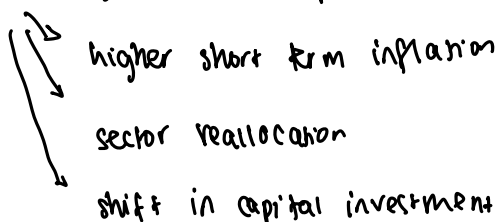 higher short term inflation
sector reallocation
shift in capital investment